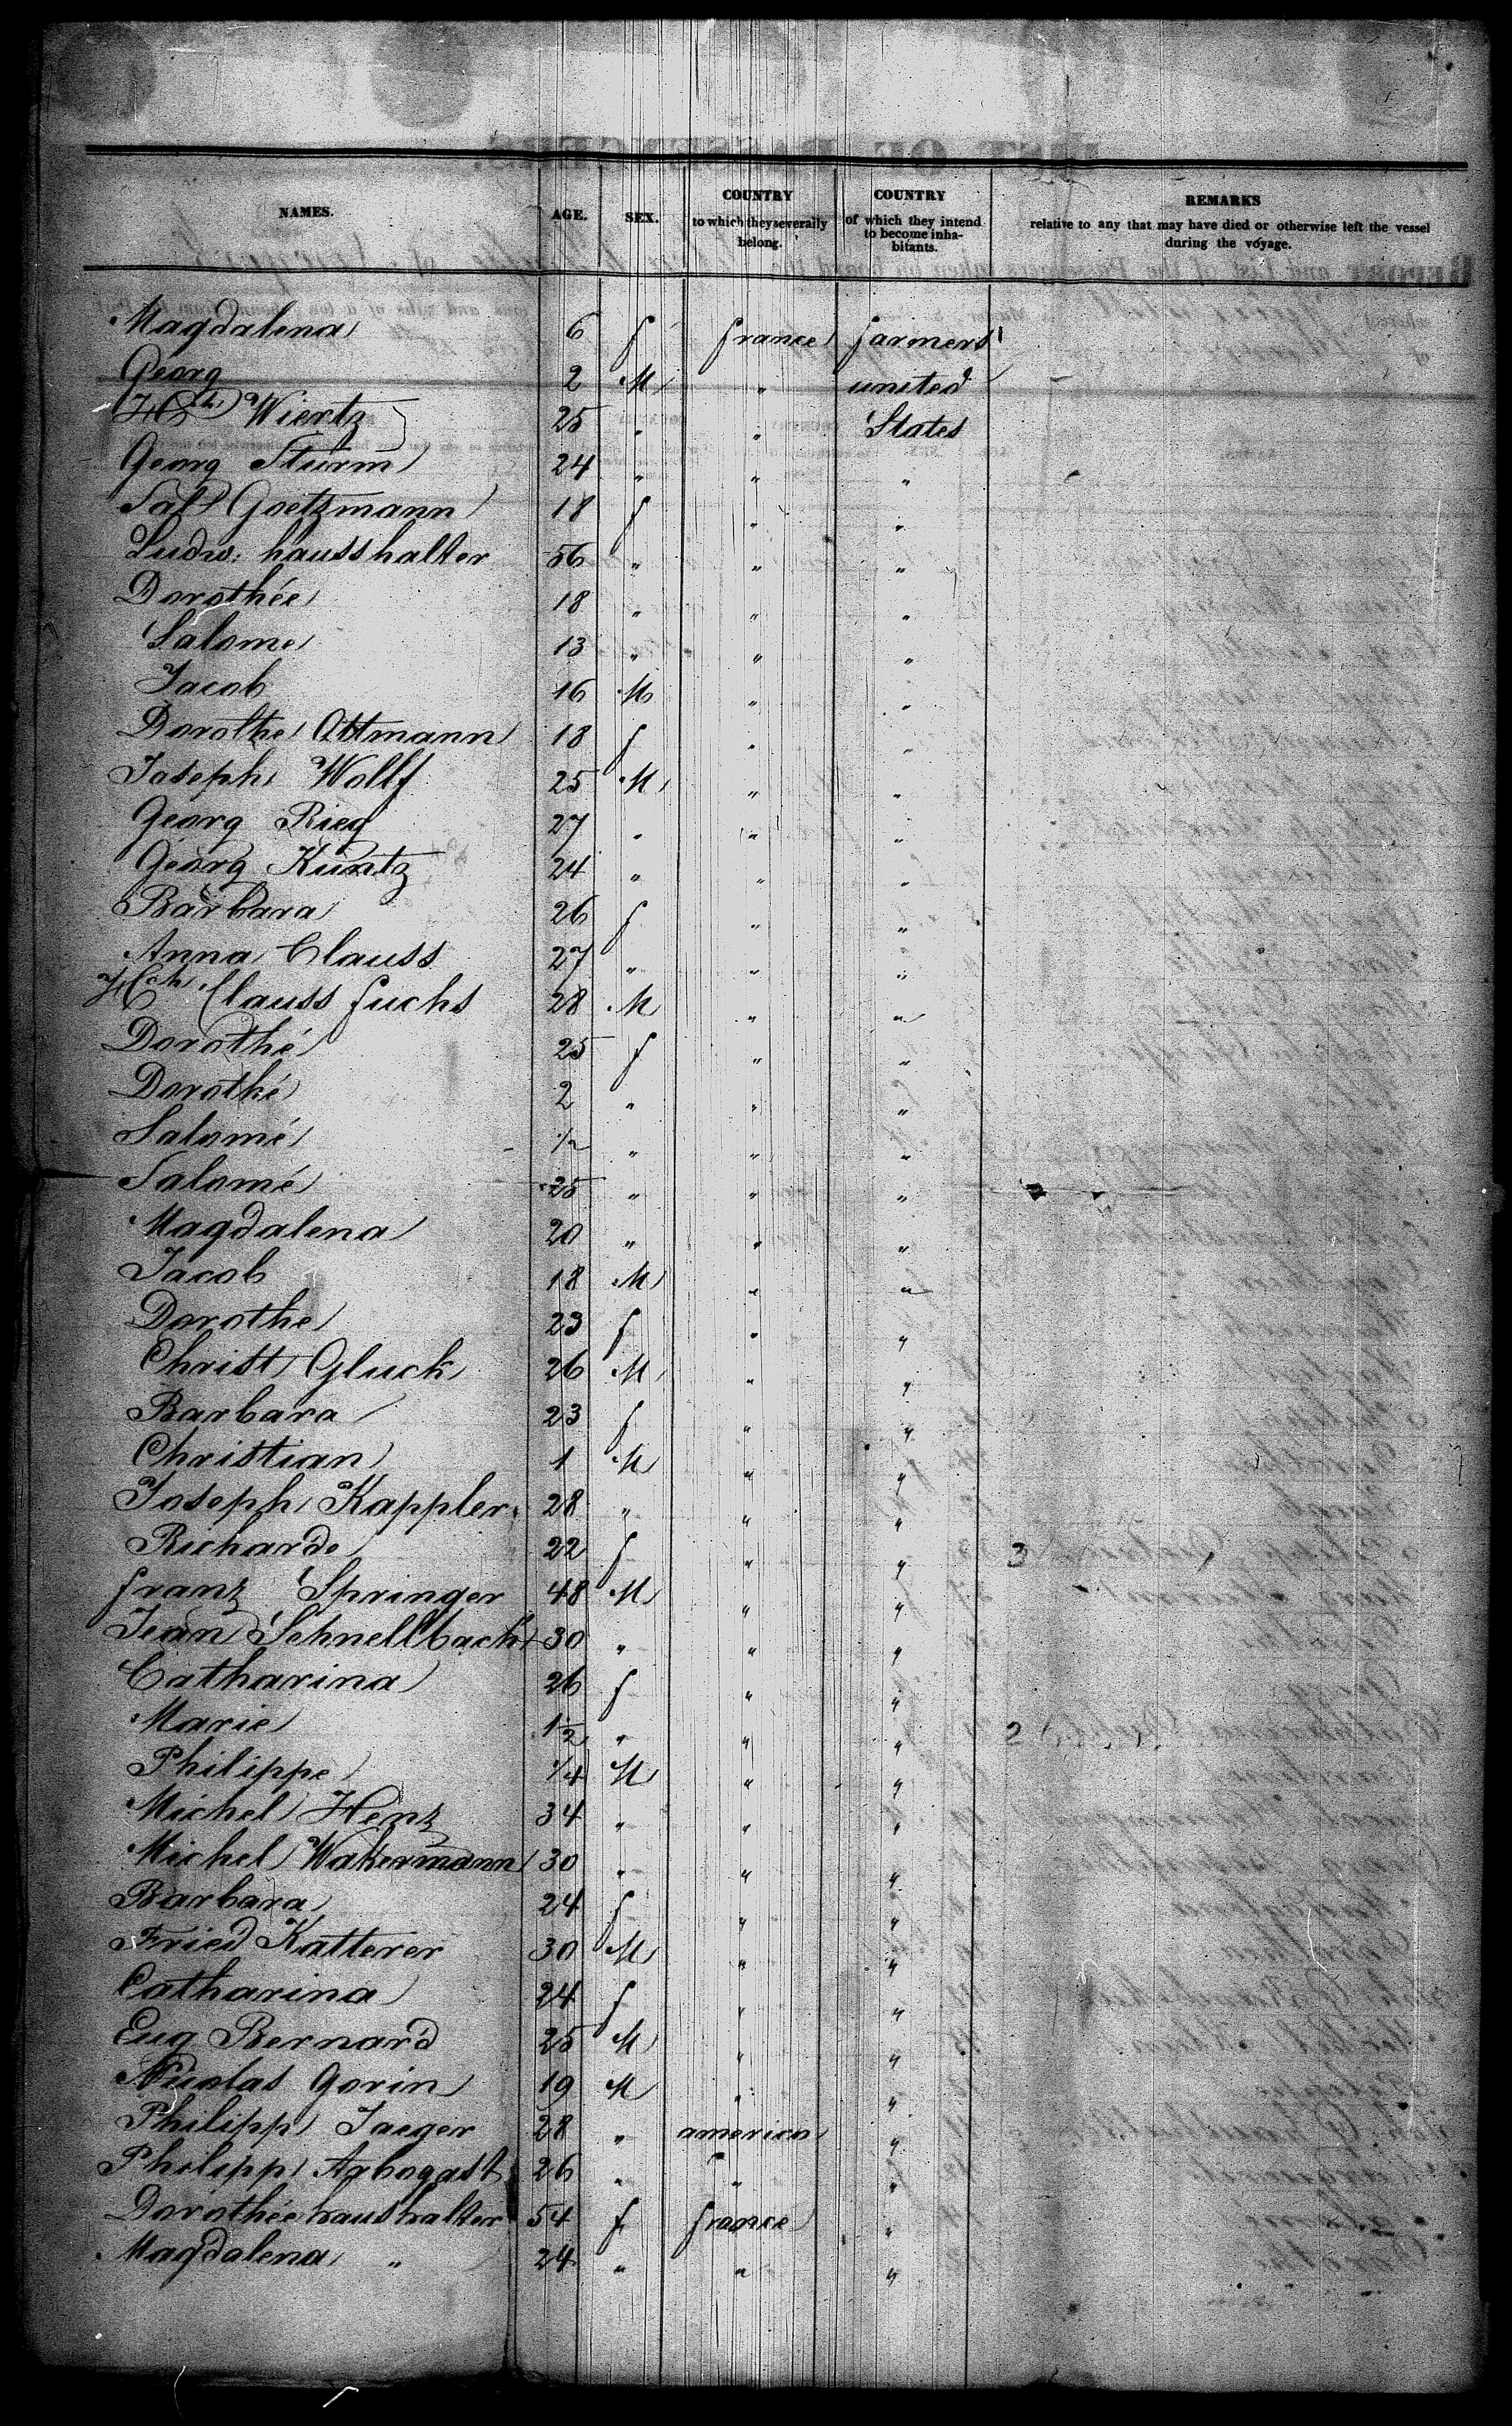 NAMES. AGE. SEX. COUNTRY to which they severally belong. COUNTRY of which they intend to become inhabitants. REMARKS relative to any that may have died or otherwise left the vessel during the voyage.
Magdalena 6 f france farmers
Georg 2 M " united
Wiertz 25 " " States
Georg Sturm 24 " " "
Sal Goetzmann 18 f " "
Ludw: hausshalter 56 " " "
Dorothée 18 " " "
Salome 13 " " "
Jacob 16 M " "
Dorothe Ottmann 18 f " "
Joseph Wolff 25 M " "
Georg Rieg 27 " " "
Georg Kuntz 24 " " "
Barbara 26 f " "
Anna Clauss 27 " " "
Clauss fuchs 28 M " "
Dorothé 25 f " "
Dorothé 2 " " "
Salomé 1/2 " " "
Salomé 25 " " "
Magdalena 20 " " "
Jacob 18 M " "
Dorothe 23 f " "
Christ Gluck 26 M " "
Barbara 23 f " "
Christian 1 M " "
Joseph Kappler 28 " " "
Richarde 22 f " " 3
franz Springer 48 M " "
Jean Schnellbach 30 " " "
Catharina 26 f " "
Marie 1 1/2 " " " 2
Philippe 1/4 M " "
Michel Hentz 34 " " "
Michel Wakermann 30 " " "
Barbara 24 f " "
Fried Katterer 30 M " "
Catharina 24 f " "
Eug Bernard 25 M " "
Nicolas Gorin 19 M " "
Philipp Jaeger 28 " america "
Philipp Arbogast 26 " " "
Dorothée haushalter 54 f france "
Magdalena " 24 " " "